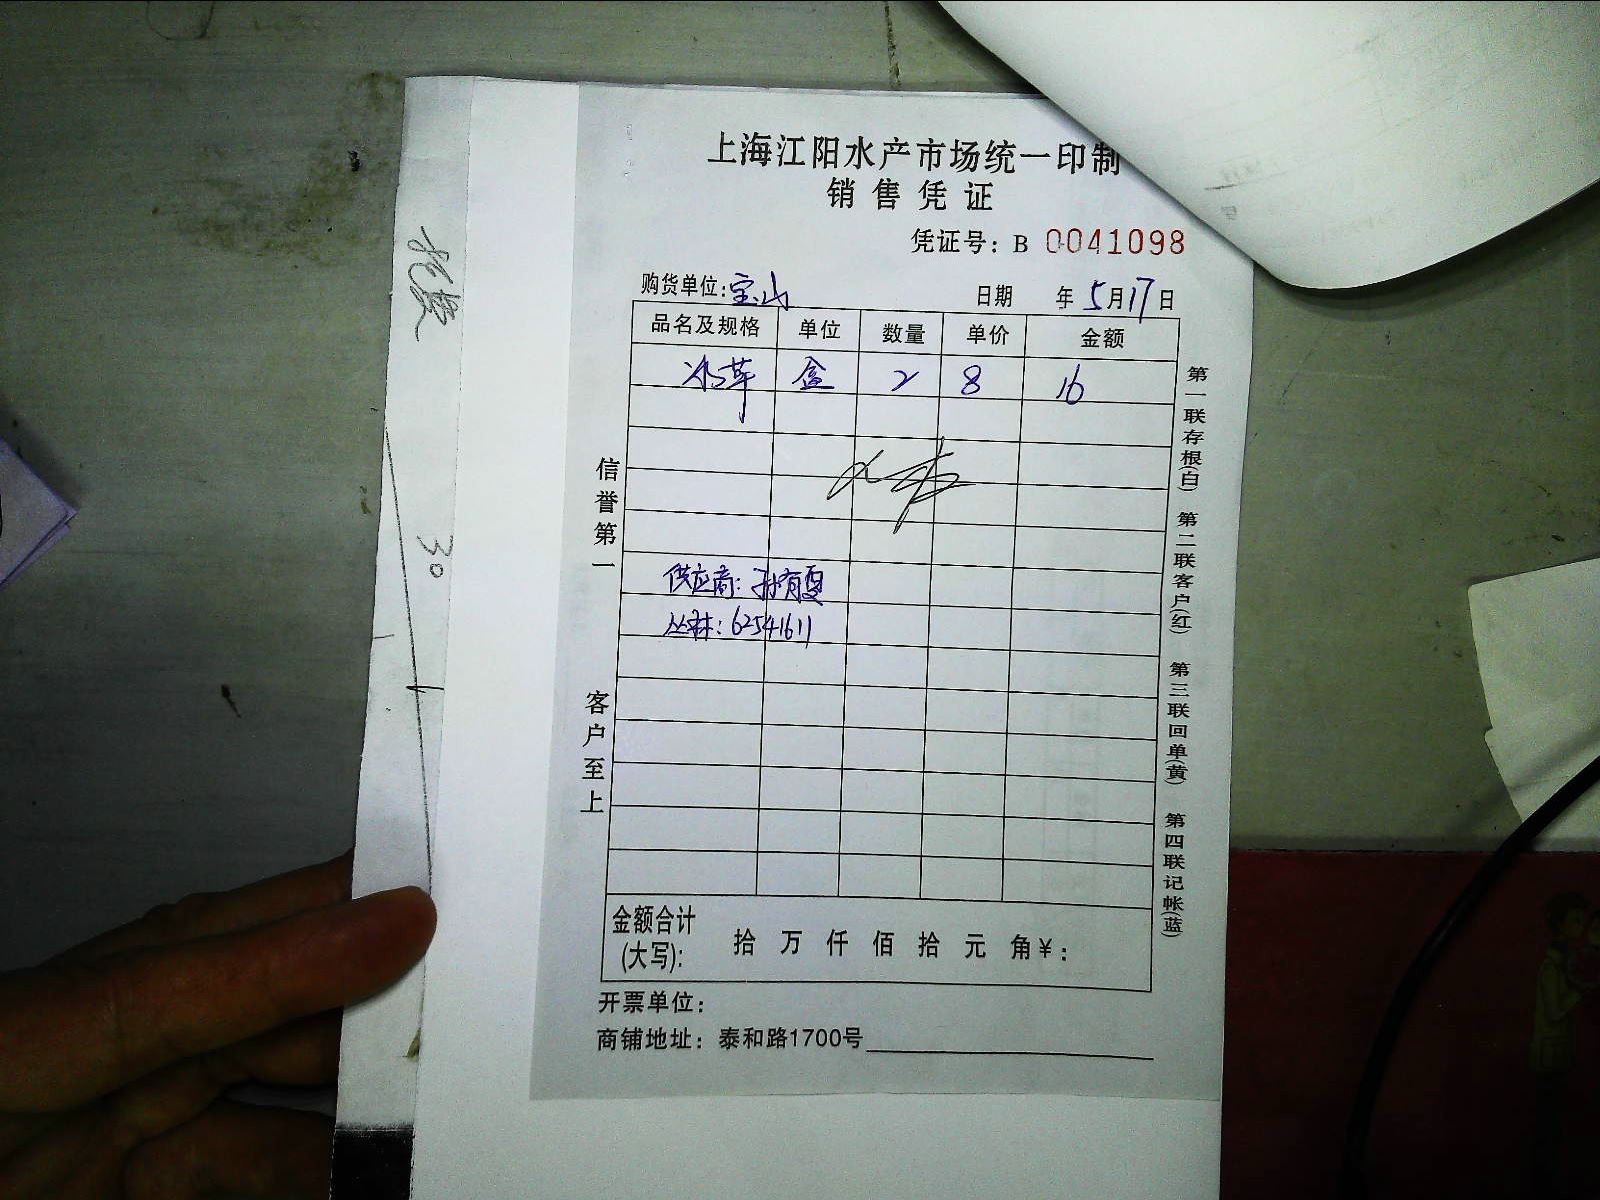 上海江阳水产市场统一印制
销售凭证
凭证号：B 0041098
购货单位：宝山 日期 年 5月17日
品名及规格 单位 数量 单价 金额
冰草 盒 2 8 16
供应商：孙有夏
丛林：62541611
信誉第一
客户至上
第一联存根(白) 第二联客户(红) 第三联回单(黄) 第四联记帐(蓝)
金额合计
(大写)： 拾 万 仟 佰 拾 元 角 ¥：
开票单位：
商铺地址：泰和路1700号
30